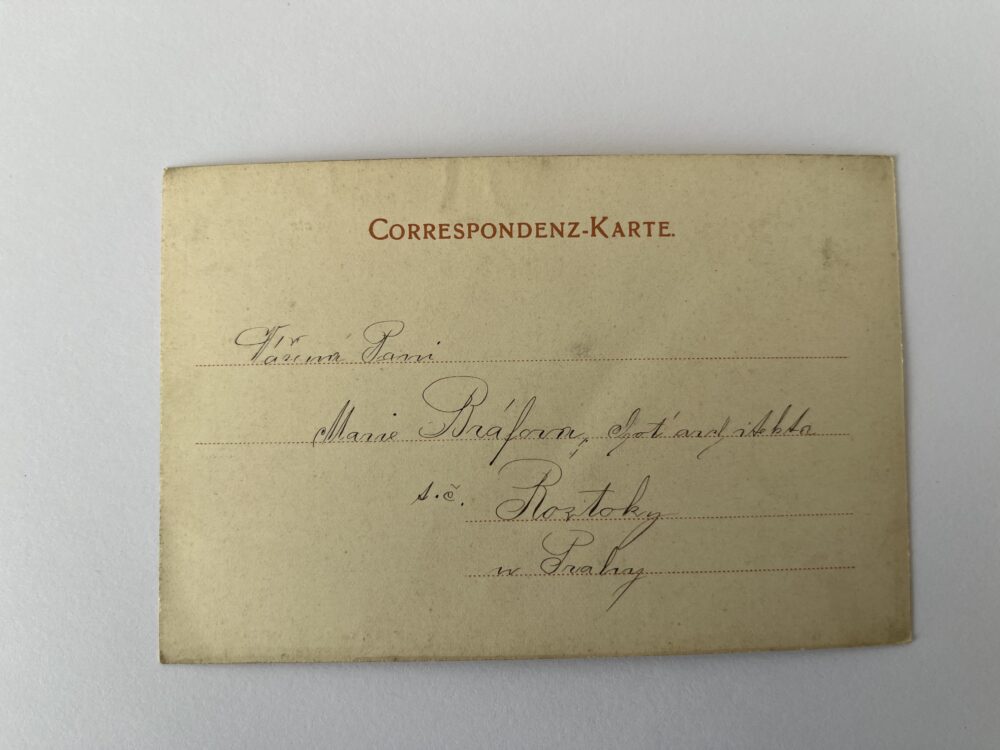 CORRESPONDENZ-KARTE.
Vážená Paní
Marie Bráfova, choť architekta
s.č. Roztoky
u Prahy